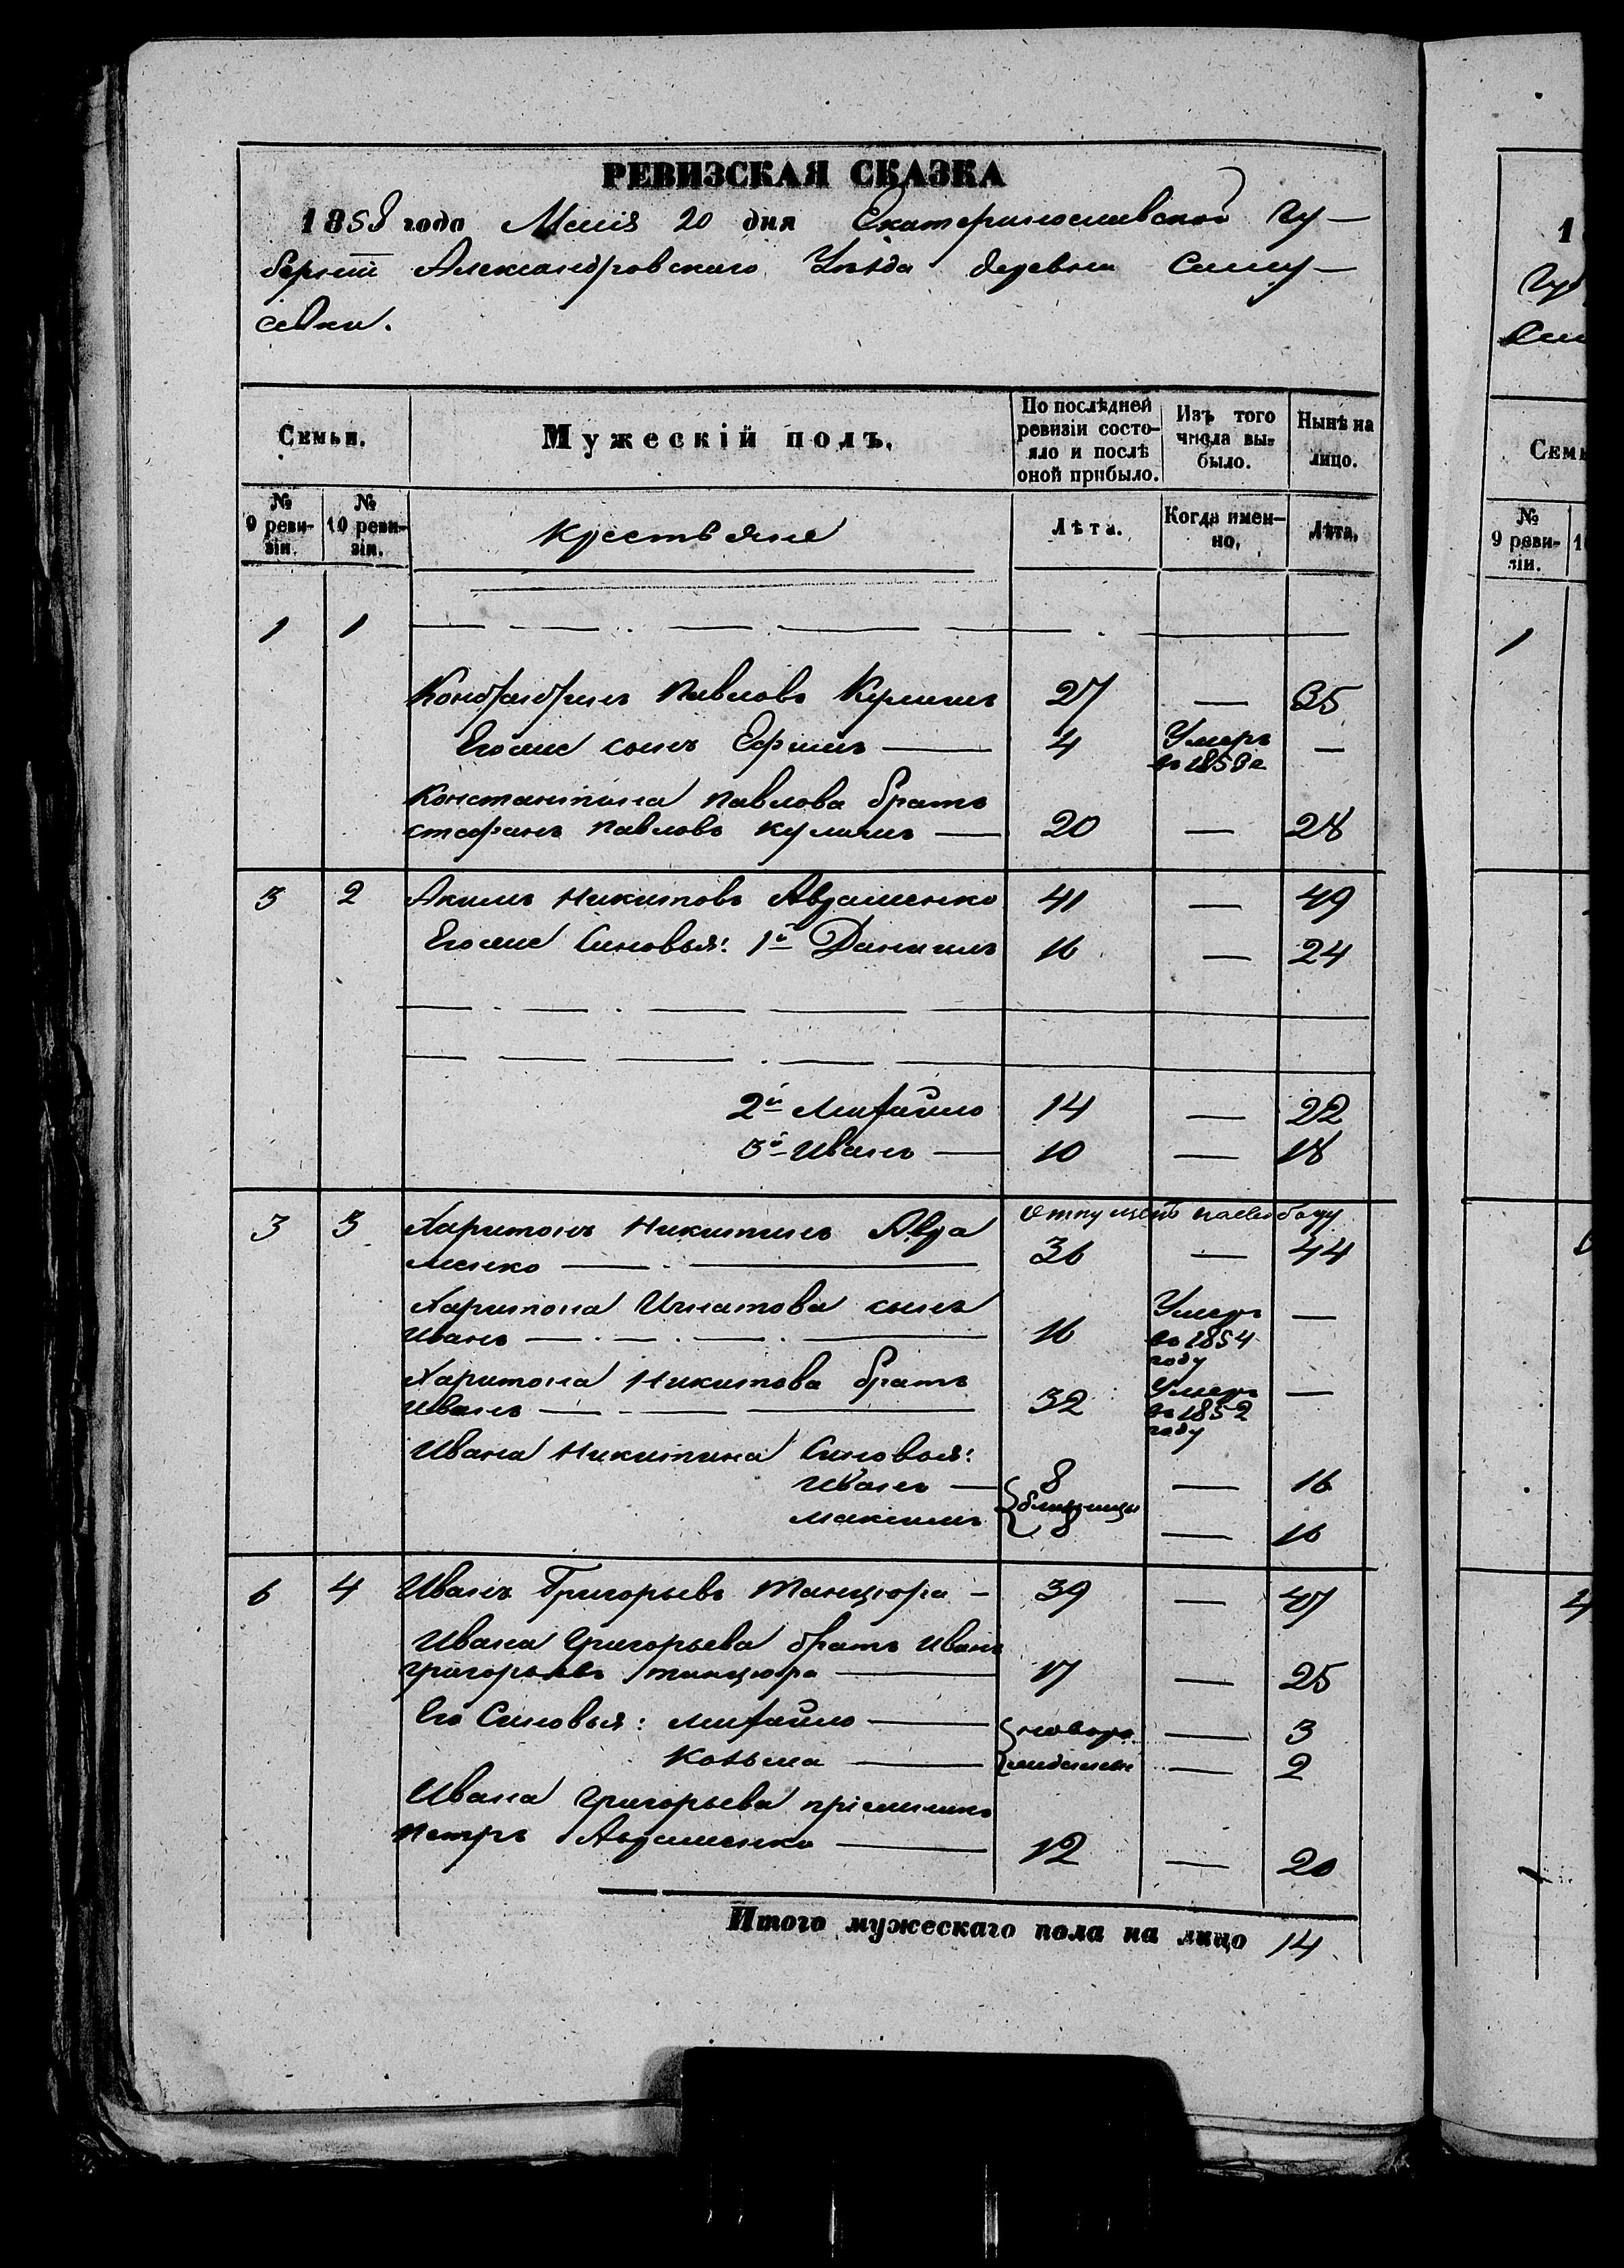 РЕВИЗСКАЯ СКАЗКА
1858 года Маія 20 дня Екатеринославской гу-
берніи Александровскаго Уѣзда деревни
Семьи. Мужескій полъ. По послѣдней ревизіи состояло и послѣ оной прибыло. Изъ того числа выбыло. Нынѣ на лицо.
№ 9 ревизіи. № 10 ревизіи. Крестьяне Лѣта. Когда именно. Лѣта.
1 1
Павловъ 27 — 35
Его же сынъ Ефимъ — 4 Умеръ въ 1858 г —
Константина Павлова братъ
Стефанъ Павловъ — 20 — 28
3 2 Акимъ Никитовъ Авраменко 41 — 49
Его же Сыновья: 1й Даниилъ 16 — 24
2й Михайло 14 — 22
3й Иванъ — 10 — 18
3 3 Харитонъ Никитинъ Авра отпущенъ на свободу
менко — 36 — 44
Харитона Игнатова сынъ
Иванъ — 16 Умеръ въ 1854 году —
Харитона Никитова братъ
Иванъ — 32 Умеръ въ 1852 году —
Ивана Никитина Сыновья:
Иванъ — 8 — 16
близнецы
Максимъ 8 — 16
6 4 Иванъ Григорьевъ Танцюра — 39 — 47
Ивана Григорьева братъ Иванъ
Григорьевъ Танцюра — 17 — 25
Его Сыновья: Михайло — новоро — 3
Козьма — жденные — 2
Ивана Григорьева пріемышъ
Петръ Авраменко — 12 — 20
Итого мужескаго пола на лицо 14
1
Семь
№
9 реви-
зіи.
1